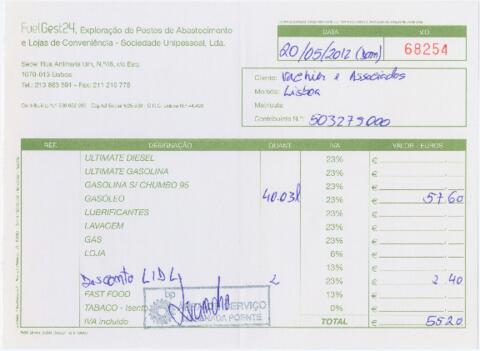 FuelGest24, Exploração de Postos de Abastecimento
e Lojas de Conveniência - Sociedade Unipessoal, Lda.
1070-013 Lisboa
Tel.: 213 863 591 - Fax: 211 210 778
DATA V.D.
20/05/2012 68254
Cliente: e Associados
Morada: Lisboa
Matrícula:
Contribuinte N.º: 503279000
REF. DESIGNAÇÃO QUANT. IVA VALOR - EUROS
ULTIMATE DIESEL 23% €
ULTIMATE GASOLINA 23% €
GASOLINA S/ CHUMBO 95 23% €
GASÓLEO 40.03l 23% € 57.60
LUBRIFICANTES 23% €
LAVAGEM 23% €
GÁS 23% €
LOJA 6% €
13% €
Desconto LIDL 2 23% € 2.40
FAST FOOD 13% €
TABACO - Isento 0% €
IVA incluído TOTAL € 5520
bp
SERVIÇO
POENTE